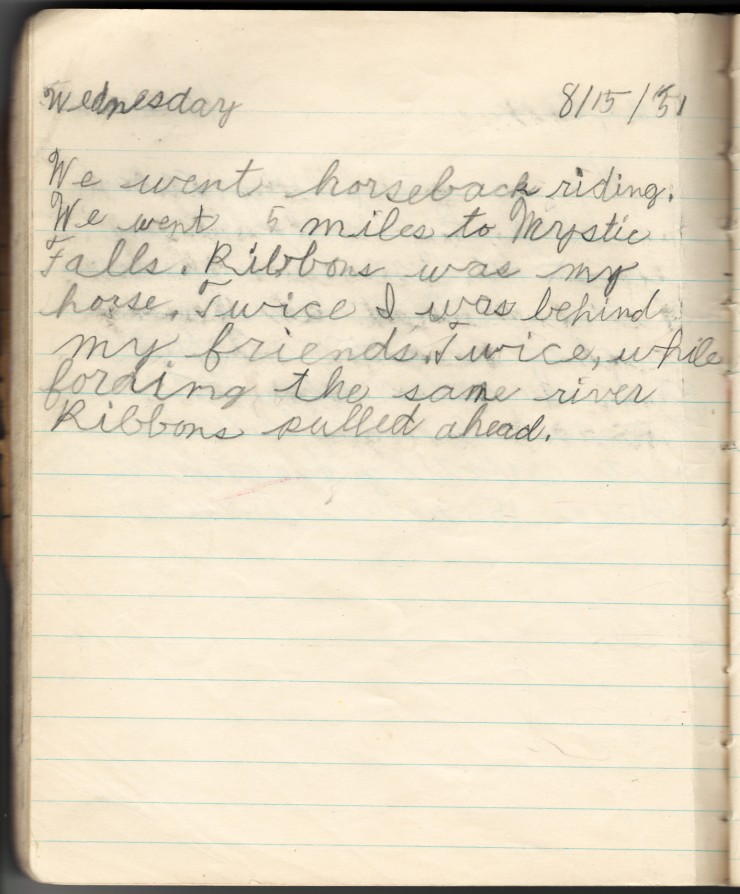 Wednesday 8/15/51
We went horseback riding.
We went 5 miles to Mystic
Falls. Ribbons was my
horse. Twice I was behind
my friends. Twice, while
fording the same river
Ribbons pulled ahead.